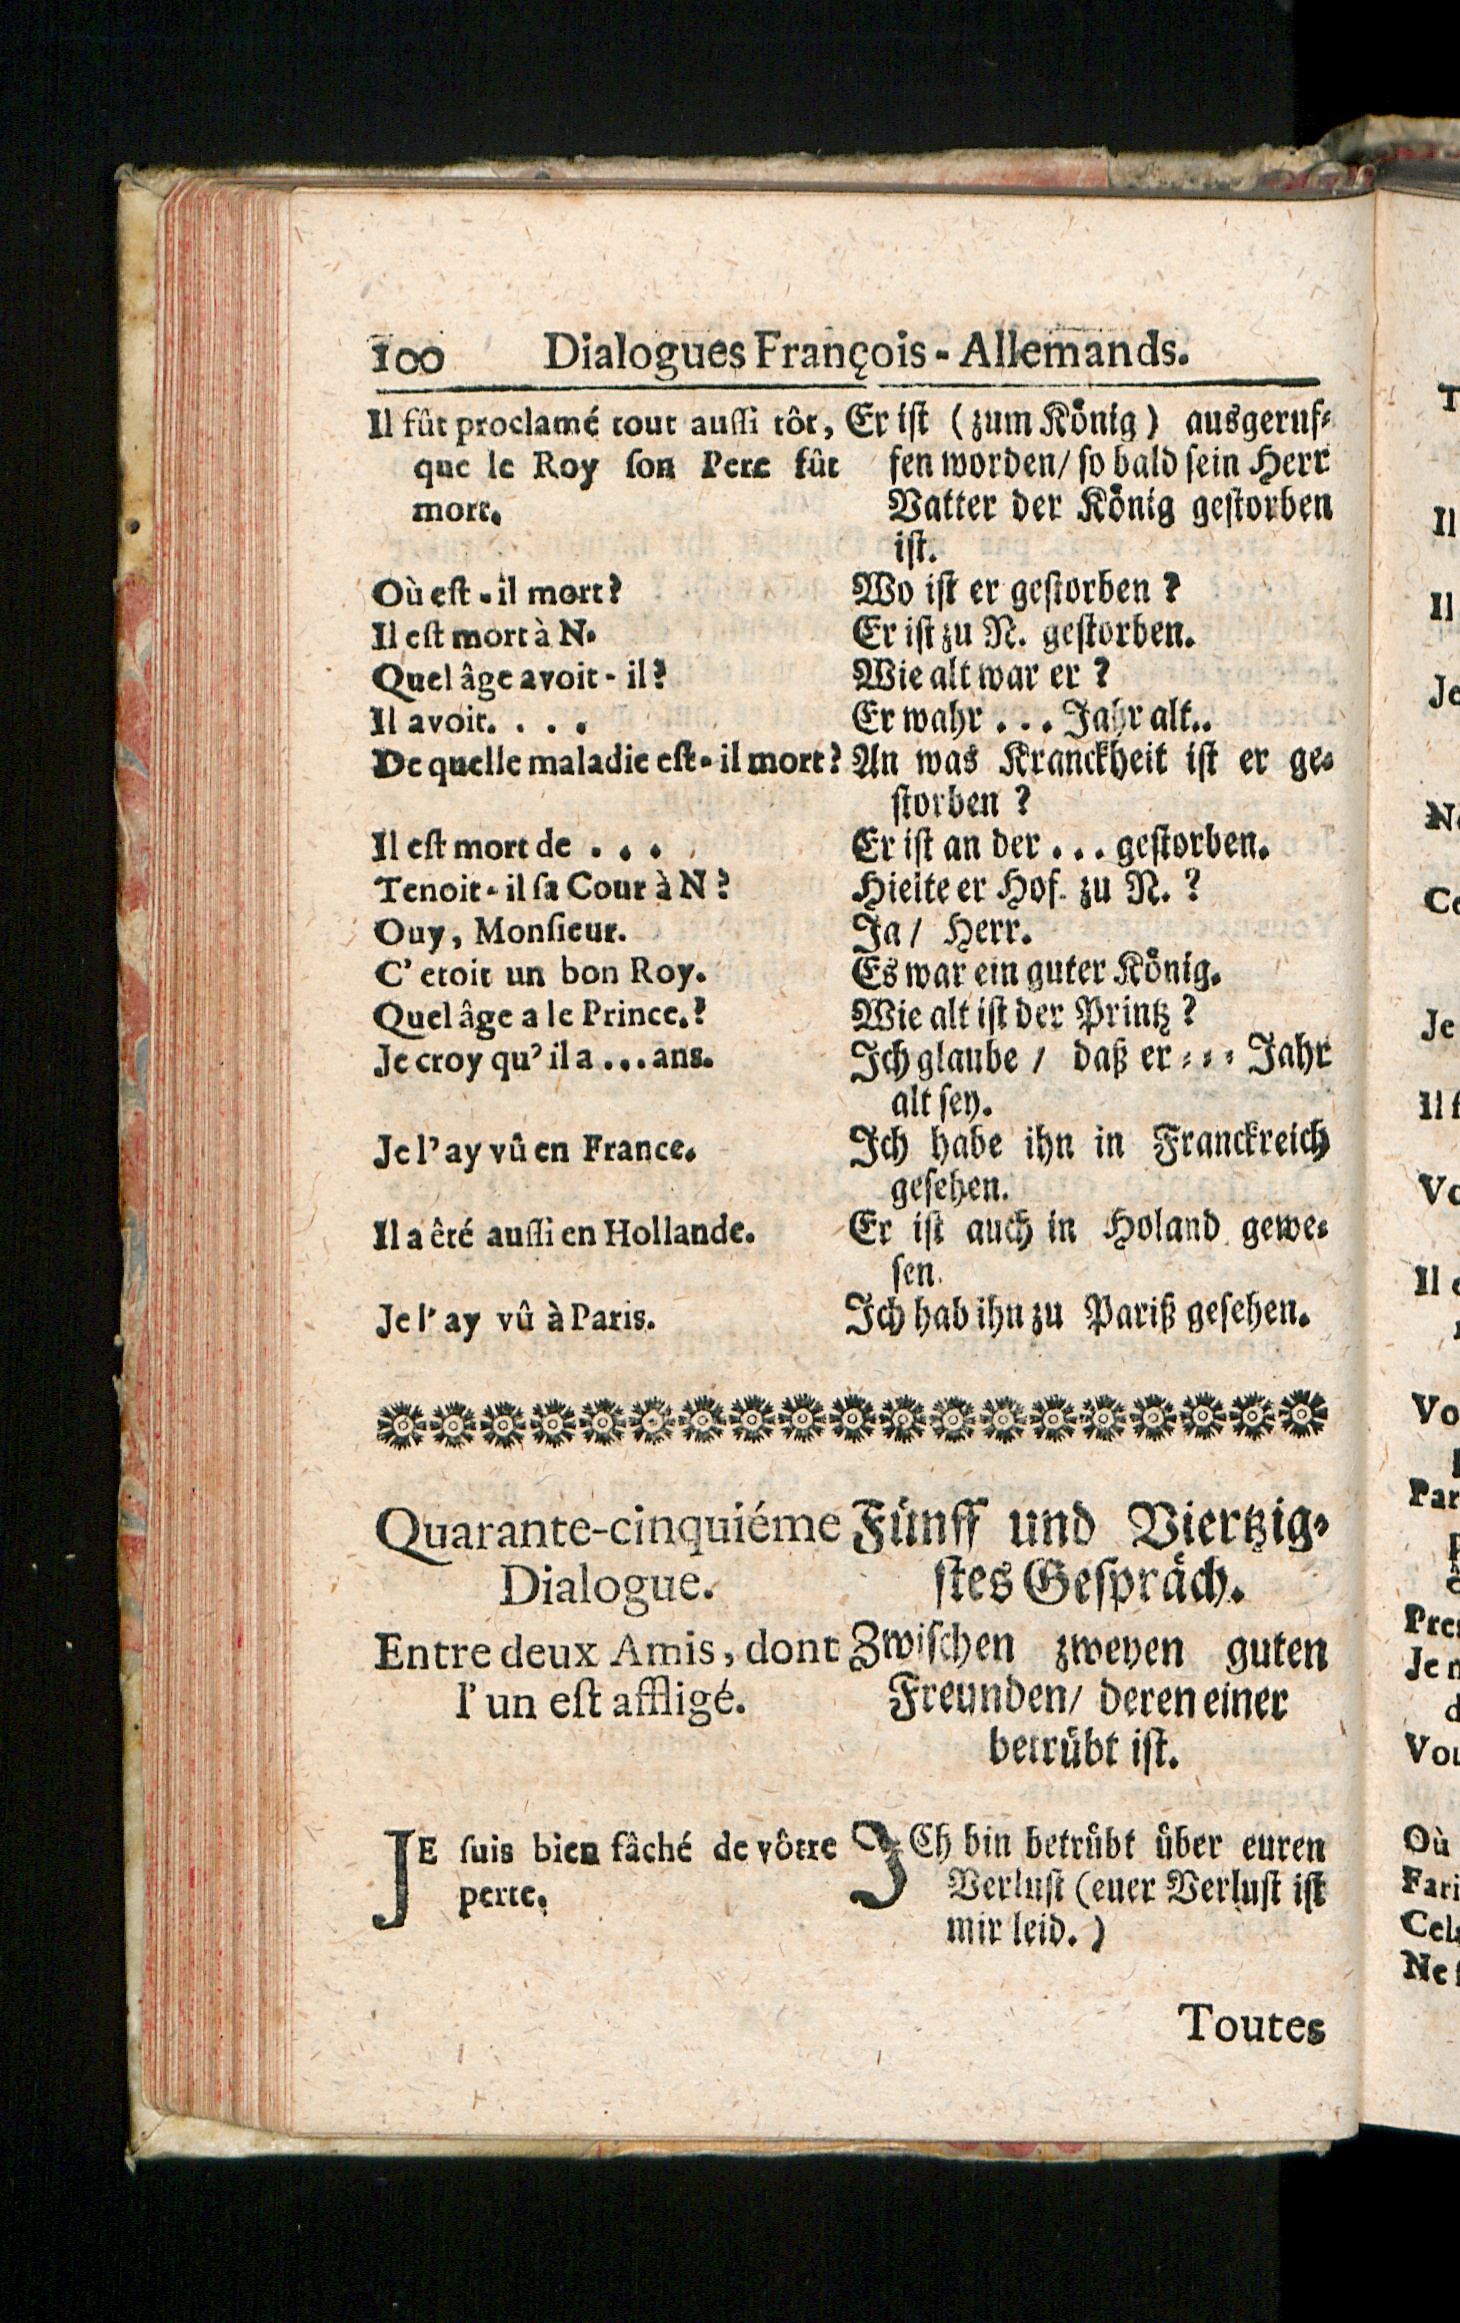 100 Dialogues François-Allemands.
Il fût proclamé tout auſſi tôt,
que le Roy ſon Pere fût
mort.
Er iſt (zum König) ausgeruf⸗
fen worden/ ſo bald ſein Herr
Vatter der König geſtorben
iſt.
Où eſt-il mort?
Wo iſt er geſtorben?
Il eſt mort à N.
Er iſt zu N. geſtorben.
Quel âge avoit-il?
Wie alt war er?
Il avoit. . . .
Er wahr . . . Jahr alt..
De quelle maladie eſt-il mort?
An was Kranckheit iſt er ge⸗
ſtorben?
Il eſt mort de . . .
Er iſt an der . . . geſtorben.
Tenoit-il ſa Cour à N?
Hielte er Hof zu N.?
Ouy, Monſieur.
Ja/ Herr.
C'etoit un bon Roy.
Es war ein guter König.
Quel âge a le Prince.?
Wie alt iſt der Printz?
Je croy qu'il a ... ans.
Ich glaube/ daß er ⸗⸗⸗ Jahr
alt ſey.
Je l'ay vû en France.
Ich habe ihn in Franckreich
geſehen.
Il a êté auſſi en Hollande.
Er iſt auch in Holand gewe⸗
ſen.
Je l'ay vû à Paris.
Ich hab ihn zu Pariß geſehen.
Quarante-cinquiéme
Dialogue.
Entre deux Amis, dont
l'un eſt affligé.
Fünff und Viertzig⸗
ſtes Geſpräch.
Zwiſchen zweyen guten
Freunden/ deren einer
betrübt iſt.
JE ſuis bien fâché de vôtre
perte.
ICh bin betrübt über euren
Verluſt (euer Verluſt iſt
mir leid.)
Toutes